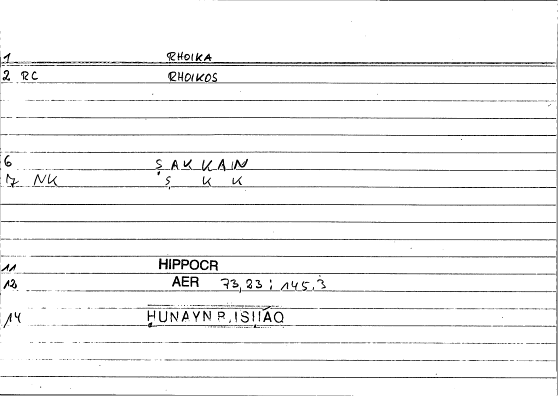 1 RHOIKA
2 RC RHOIKOS
6 ṢAKKAIN
7 NK Ṣ K K
11 HIPPOCR
12 AER 73,23 ; 145.3
14 ḤUNAYN B. ISḤĀQ